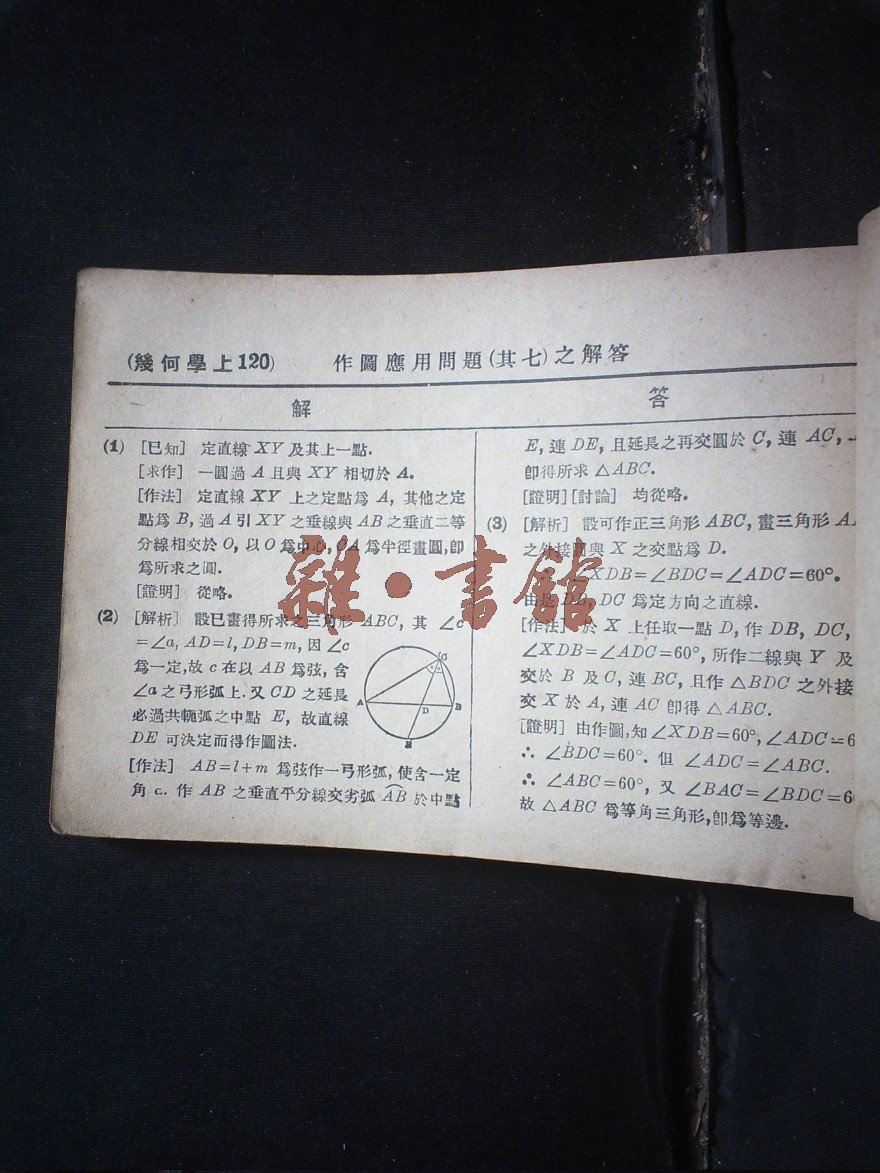 (幾何學上120) 作圖應用問題(其七)之解答
解 答
(1) [已知] 定直線 XY 及其上一點.
[求作] 一圓過 A 且與 XY 相切於 A.
[作法] 定直線 XY 上之定點爲 A, 其他之定
點爲 B, 過 A 引 XY 之垂線與 AB 之垂直二等
分線相交於 O, 以 O 爲中心, OA 爲半徑畫圓, 卽
爲所求之圓.
[證明] 從略.
(2) [解析] 設已畫得所求之三角形 ABC, 其 ∠c
=∠a, AD=l, DB=m, 因 ∠c
爲一定, 故 c 在以 AB 爲弦, 含
∠a 之弓形弧上. 又 CD 之延長
必過共軛弧之中點 E, 故直線
DE 可決定而得作圖法.
C
A
D
B
[作法] AB=l+m 爲弦作一弓形弧, 使含一定
角 . 作 AB 之垂直平分線交劣弧 AB 於中點
E, 連 DE, 且延長之再交圓於 C, 連 AC,
卽得所求 △ABC.
[證明][討論] 均從略.
(3) [解析] 設可作正三角形 ABC, 畫三角形 A
之外接圓與 X 之交點爲 D.
∠XDB=∠BDC=∠ADC=60°.
由是 DB, DC 爲定方向之直線.
[作法] 於 X 上任取一點 D, 作 DB, DC,
∠XDB=∠ADC=60°, 所作二線與 Y 及
交於 B 及 C, 連 BC, 且作 △BDC 之外接
交 X 於 A, 連 AC 卽得 △ABC.
[證明] 由作圖, 知 ∠XDB=60°, ∠ADC=6
∴ ∠BDC=60°. 但 ∠ADC=∠ABC.
∴ ∠ABC=60°, 又 ∠BAC=∠BDC=6
故 △ABC 爲等角三角形, 卽爲等邊.
雜·書館